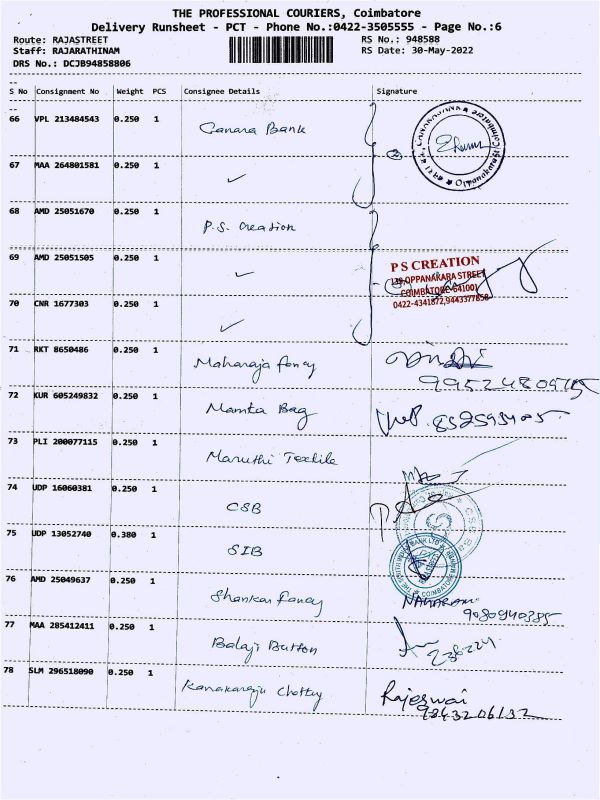 THE PROFESSIONAL COURIERS, Coimbatore
Delivery Runsheet - PCT - Phone No.:0422-3505555 - Page No.:6
Route: RAJASTREET
Staff: RAJARATHINAM
DRS No.: DCJB94858806
RS No.: 948588
RS Date: 30-May-2022
S No Consignment No Weight PCS Consignee Details Signature
66 VPL 213484543 0.250 1 Canara Bank
67 MAA 264801581 0.250 1 ✓
68 AMD 25051670 0.250 1 P.S. Creation
69 AMD 25051505 0.250 1 ✓
P S CREATION
139,OPPANAKARA STREET
COIMBATORE-641001
0422-4341872,9443377858
70 CNR 1677303 0.250 1 ✓
71 RKT 8650486 0.250 1 Maharaja fancy
72 KUR 605249832 0.250 1 Mamta Bag
73 PLI 200077115 0.250 1 Maruthi Textile
74 UDP 16060381 0.250 1 CSB
75 UDP 13052740 0.380 1 SIB
76 AMD 25049637 0.250 1 Shankar fancy
9080940385
77 MAA 285412411 0.250 1 Balaji Button
78 SLM 296518090 0.250 1 Kanakaraju Chetty Rajeswai
9843206132